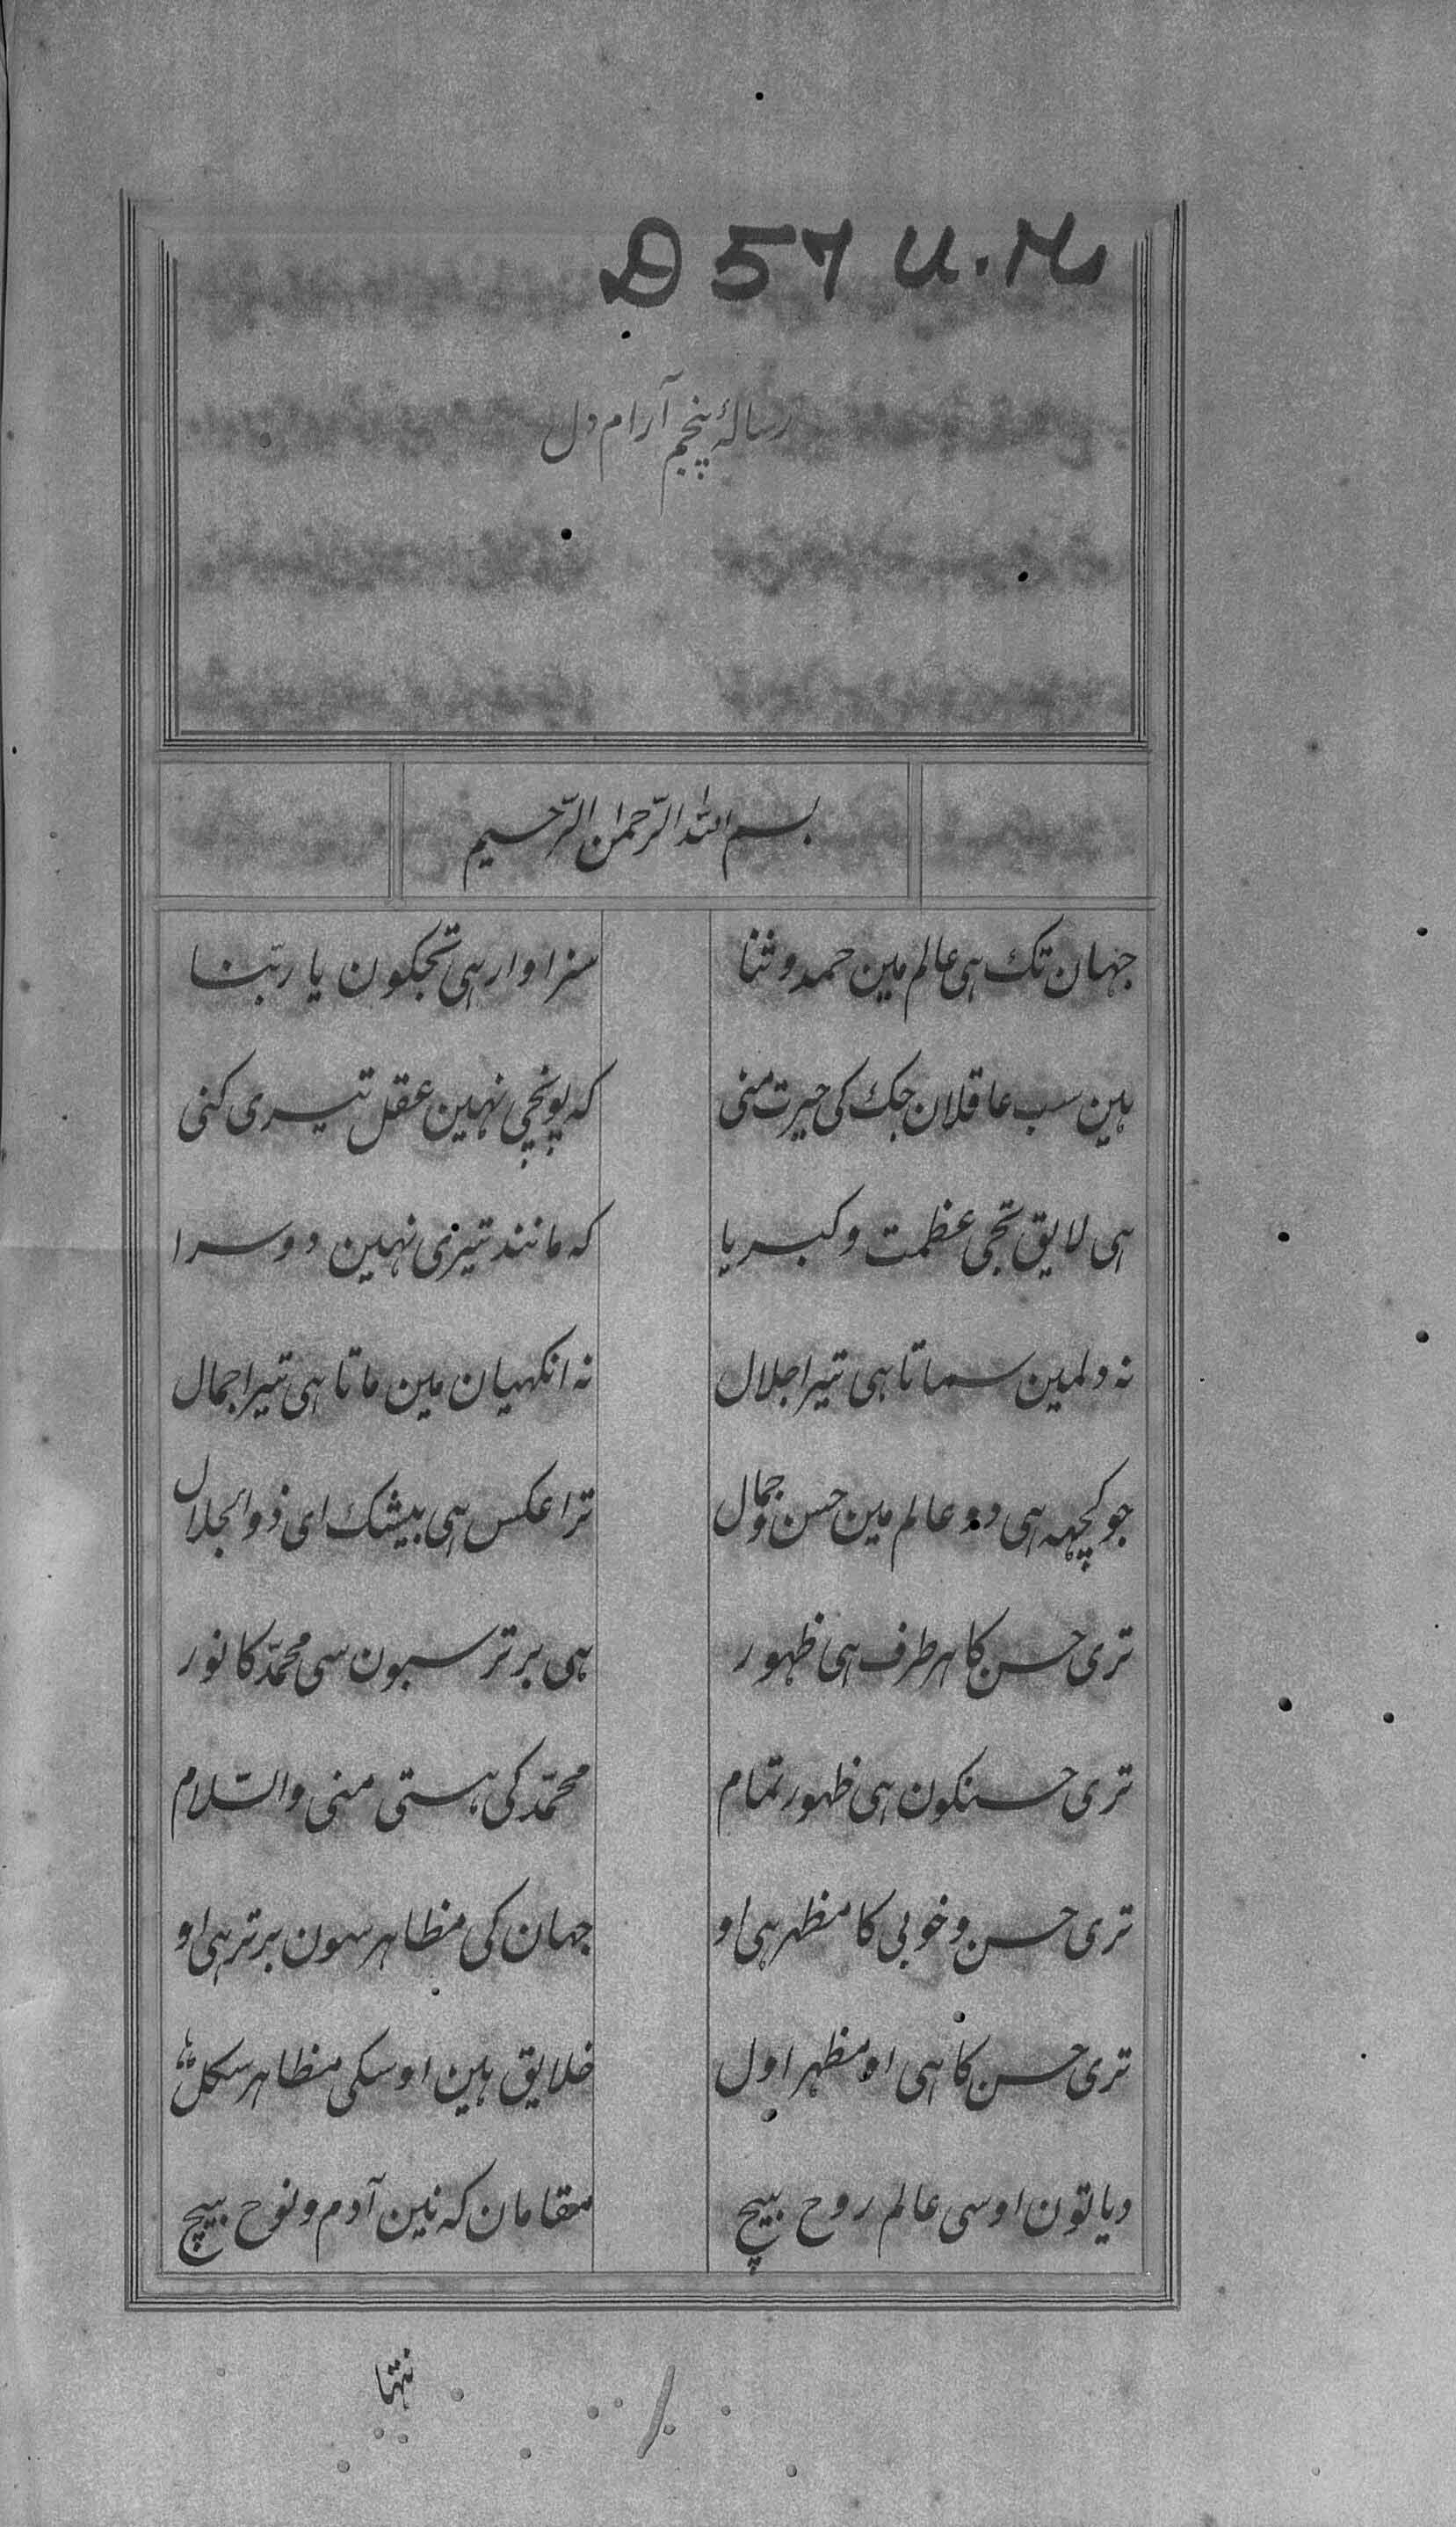 D 57 U.M.
رسالۂ پنجم آرام دل
بسم الله الرّحمن الرّحیم
جہان تک ہی عالم مین حمد و ثنا سزاوار ہی تجکون یا ربّنا
ہین سب عاقلان جک کی حیرت منی که پونچی نہین عقل تیری کنی
ہی لایق تجی عظمت و کبریا که مانند تیری نہین دوسرا
نه دلمین سماتا ہی تیرا جلال نه انکہیان مین ماتا ہی تیرا جمال
جو کچہه ہی دو عالم مین حسن و جمال ترا عکس ہی بیشک ای ذوالجلال
تری حسن کا ہر طرف ہی ظہور ہی برتر سبون سی محمّد کا نور
تری حسنکون ہی ظہور تمام محمّد کی ہستی منی والسّلام
تری حسن و خوبی کا مظہر ہی او جہان کی مظاہر سون برتر ہی او
تری حسن کا ہی او مظہر اول خلایق ہین اوسکی مظاہر سکل
دیا تون اوسی عالم روح بیچ مقامان که نین آدم و نوح بیچ
نتہا